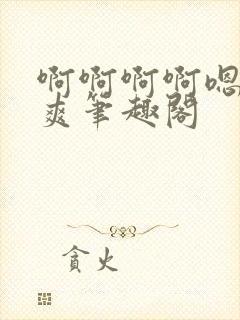 啊啊啊啊嗯
爽筆趣閣
貪火